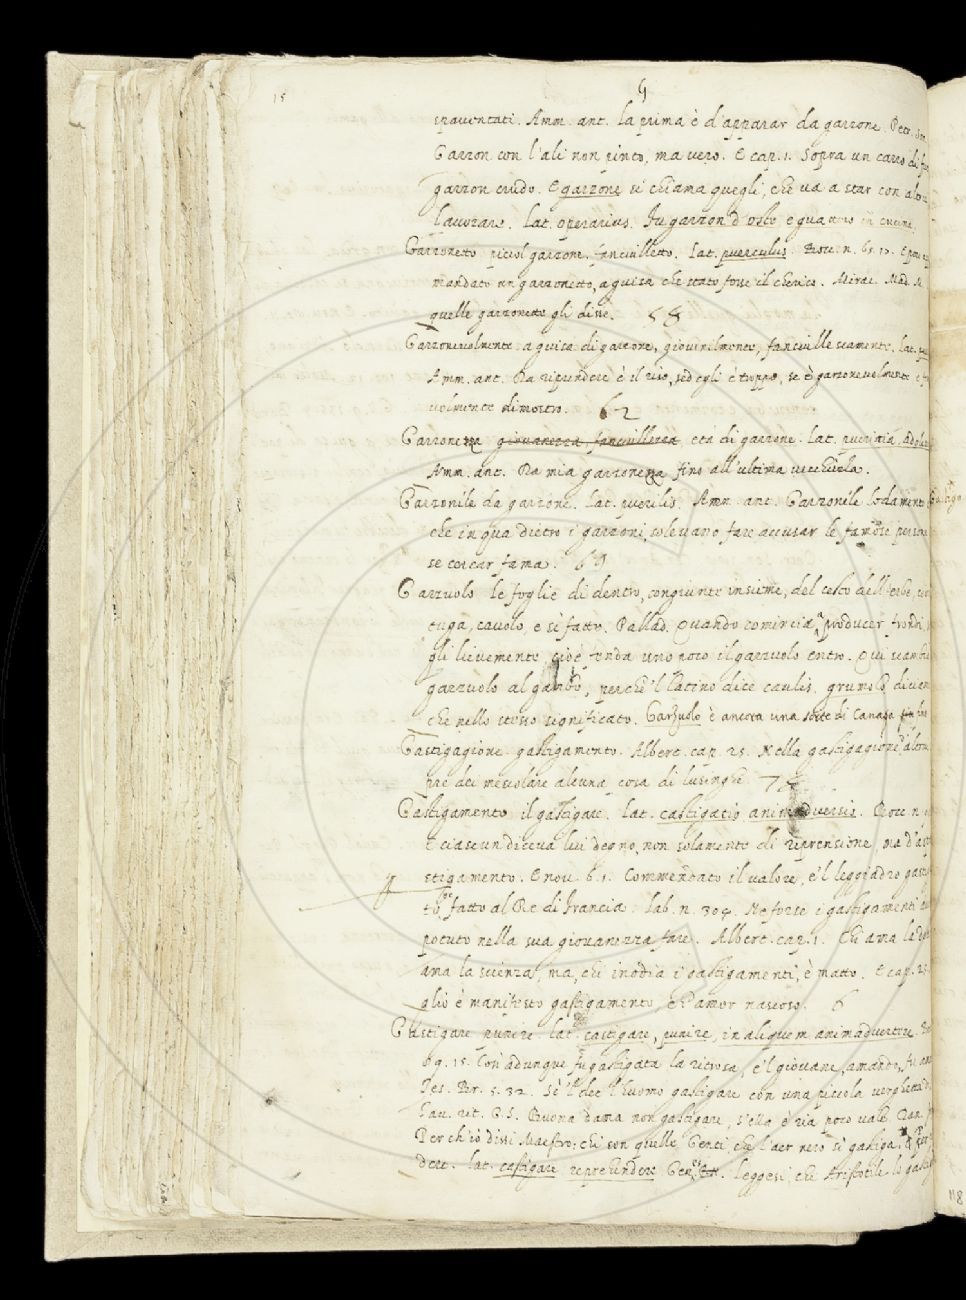 15
G
spauentati. Amm. ant. La prima è d'apparar da garzone. Petr. son.
Garzon con l'ali non pinto, ma vero. E cap. 1. Sopra un carro di
garzon crudo. E garzone si chiama quegli, che va a star con altri
lauorare. Lat. operarius. Fu garzon d'osto, e guattero in cucina.
Garzonetto picciol garzone, fanciulletto. Lat. puerculus. Bocc. n. 65. 13. E
mandato un garzonetto, a guisa che stato fosse il cherico. Mirac. Mad. M.
quelle garzonetto gli disse. 58
Garzoneuolmente a guisa di garzone, giouinilmente, fanciullescamente. Lat.
Amm. ant. Da riprendere è il riso, sed egli è troppo, se è garzoneuolmente
uolmente dimostro. 62
Garzonezza giouanezza, fanciullezza età di garzone. Lat. pueritia,
Amm. ant. Da mia garzonezza fino all'ultima vecchiezza.
Garzonile da garzone. Lat. puerilis. Amm. ant. Garzonile lodamento
che in qua dietro i garzoni, soleuano fare accusar le famose
se cercar fama. 69
Garzuolo le foglie di dentro, congiunte insieme, del cesto dell'erbe,
tuga, cauolo, e sì fatte. Pallad. Quando comincia a producer frondi,
gli lieuemente, cioè fenda uno poco il garzuolo entro. Qui
garzuolo al gambo, perchè 'l Latino dice caulis. grumolo
che nello stesso significato. Garzuolo è ancora una sorte di Canapa
Gastigagione gastigamento. Albert. cap. 25. Nella gastigagione
pre dei mescolare alcuna cosa di lusinghe 78
Gastigamento il gastigare. Lat. castigatio animaduersio. Bocc. n.
E ciascun diceua lui degno, non solamente di riprensione, ma d'
stigamento. E nou. 61. Commendato il valore, e 'l leggiadro
to fatto al Re di Francia. Lab. n. 304. Ne forse i gastigamenti
potuto nella sua giouanezza fare. Albert. cap. 1. Chi ama la
ama la scienza, ma, chi inodia i gastigamenti, è matto. E cap. 25.
glio è manifesto gastigamento, ch'amor nascoso. 6
Gastigare punire. Lat. castigare, punire, in aliquem animaduertere.
69. 15. Così adunque fu gastigata la ritrosa, e 'l giouane, amando,
Tes. Br. 5. 32. Sè 'l dee l'huomo gastigare con una piccola verghetta
Fau. rit. P. S. Buona dama non gastigare, s'ella è ria poco vale. Dan.
Perch'io dissi Maestro: chi son quelle Genti, che l'aer nero sì gastiga.
dere. Lat. castigare reprehendere Gen. leggesi, che Aristotile lo
118